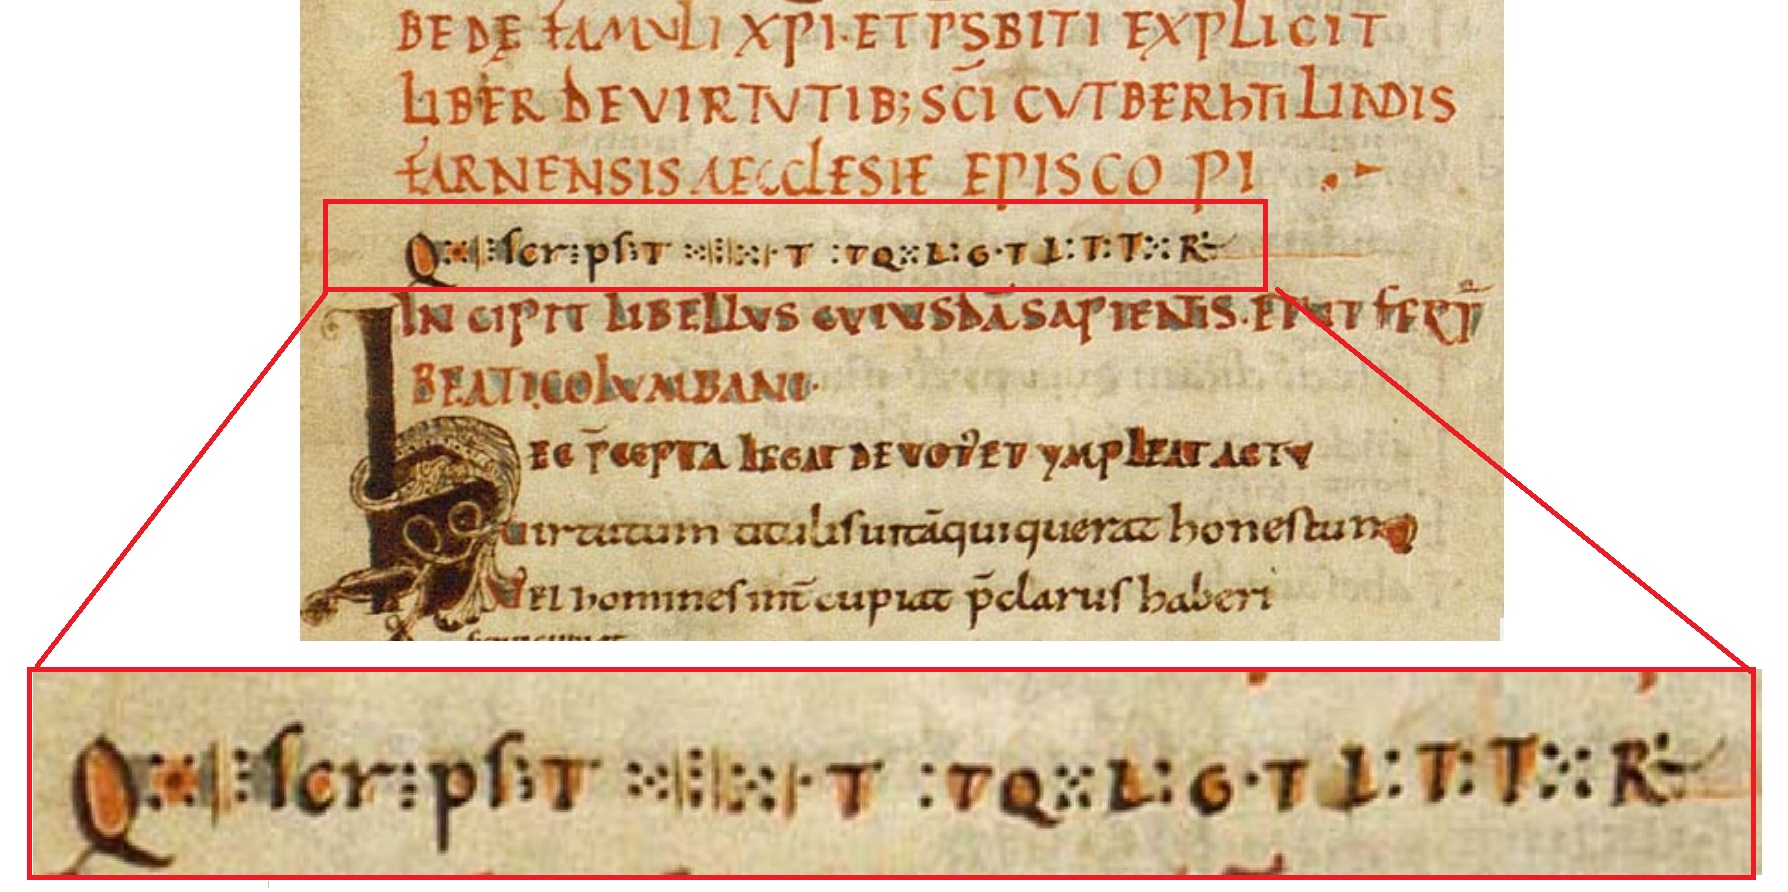 BEDĘ FAMVLI XP̄I·ET PSB̄ITI EXPLICIT
LIBER DE VIRTVTIB; SC̄I CVTBERHTI LINDIS
FARNENSIS AECCLESIE EPISCOPI
Q⁙⫶ scr⫶ps⫶T ⁙⫶⁙·T :T Q⁙ L:G·T L:T:T⁙R
INCIPIT LIBELLVS CVIVSDĀ SAPIENTIS·ET UT FERT̄
BEATI COLVMBANI·
HEC P̄CEPTA LEGAT DEVOT' ET YMPLEAT ACTV
uirtutum titulis uitā qui querat honestam
Vel homines int̄ cupiat p̄clarus haberi
Q⁙⫶ scr⫶ps⫶T ⁙⫶⁙·T :T Q⁙ L:G·T L:T:T⁙R